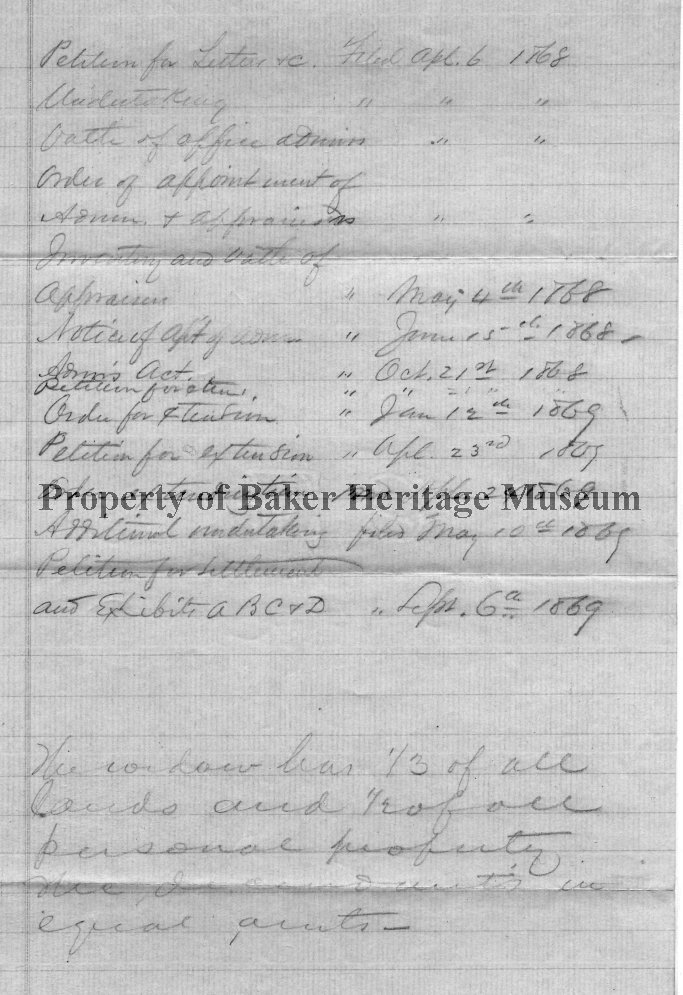 Petition for Letters &c. Filed Apl. 6 1868
Undertaking " " "
Oath of office admin " "
Order of appointment of
Admin. & appraisers " "
Inventory and Oath of
Appraisers " May 4th 1868
Notice of Apt of Admr " June 15th 1868
Adm's Act. " Oct. 21st 1868
Petition for " " " "
Order for Extension " Jan 12th 1869
Petition for extension " Apl. 23rd 1869
Property of Baker Heritage Museum
Additional undertaking filed May 10th 1869
Petition for Settlement
and Exhibits A B C & D " Sept. 6th 1869
The widow has 1/3 of all
lands and 1/2 of all
personal property
The in
equal parts